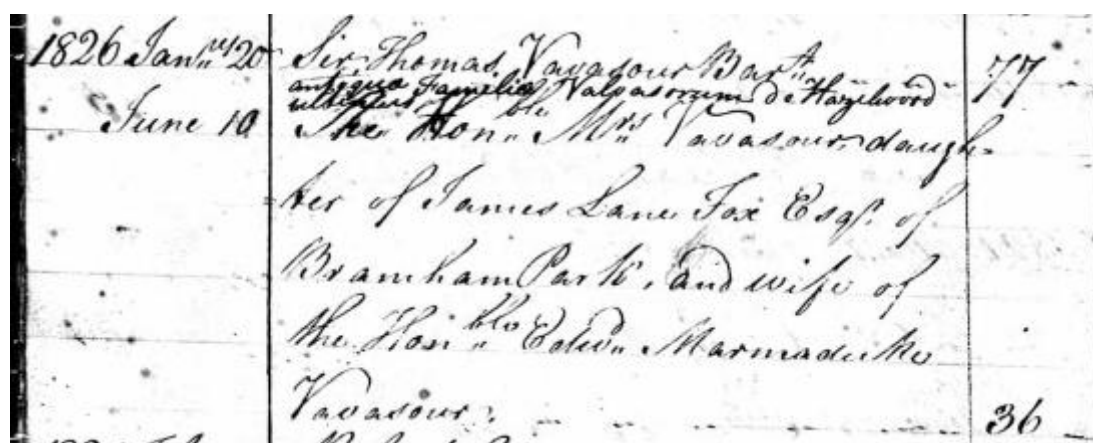 1826 Jan.ry 20 Sir Thomas Vavasour Bar.t 77
antiquæ Familiæ Valvasorum de Hazelwood
ultimus
June 10 The Hon.ble Mrs Vavasour, daugh=
ter of James Lane Fox Esq.r of
Bramham Park, and wife of
the Hon.ble Edw.d Marmaduke
Vavasour. 36